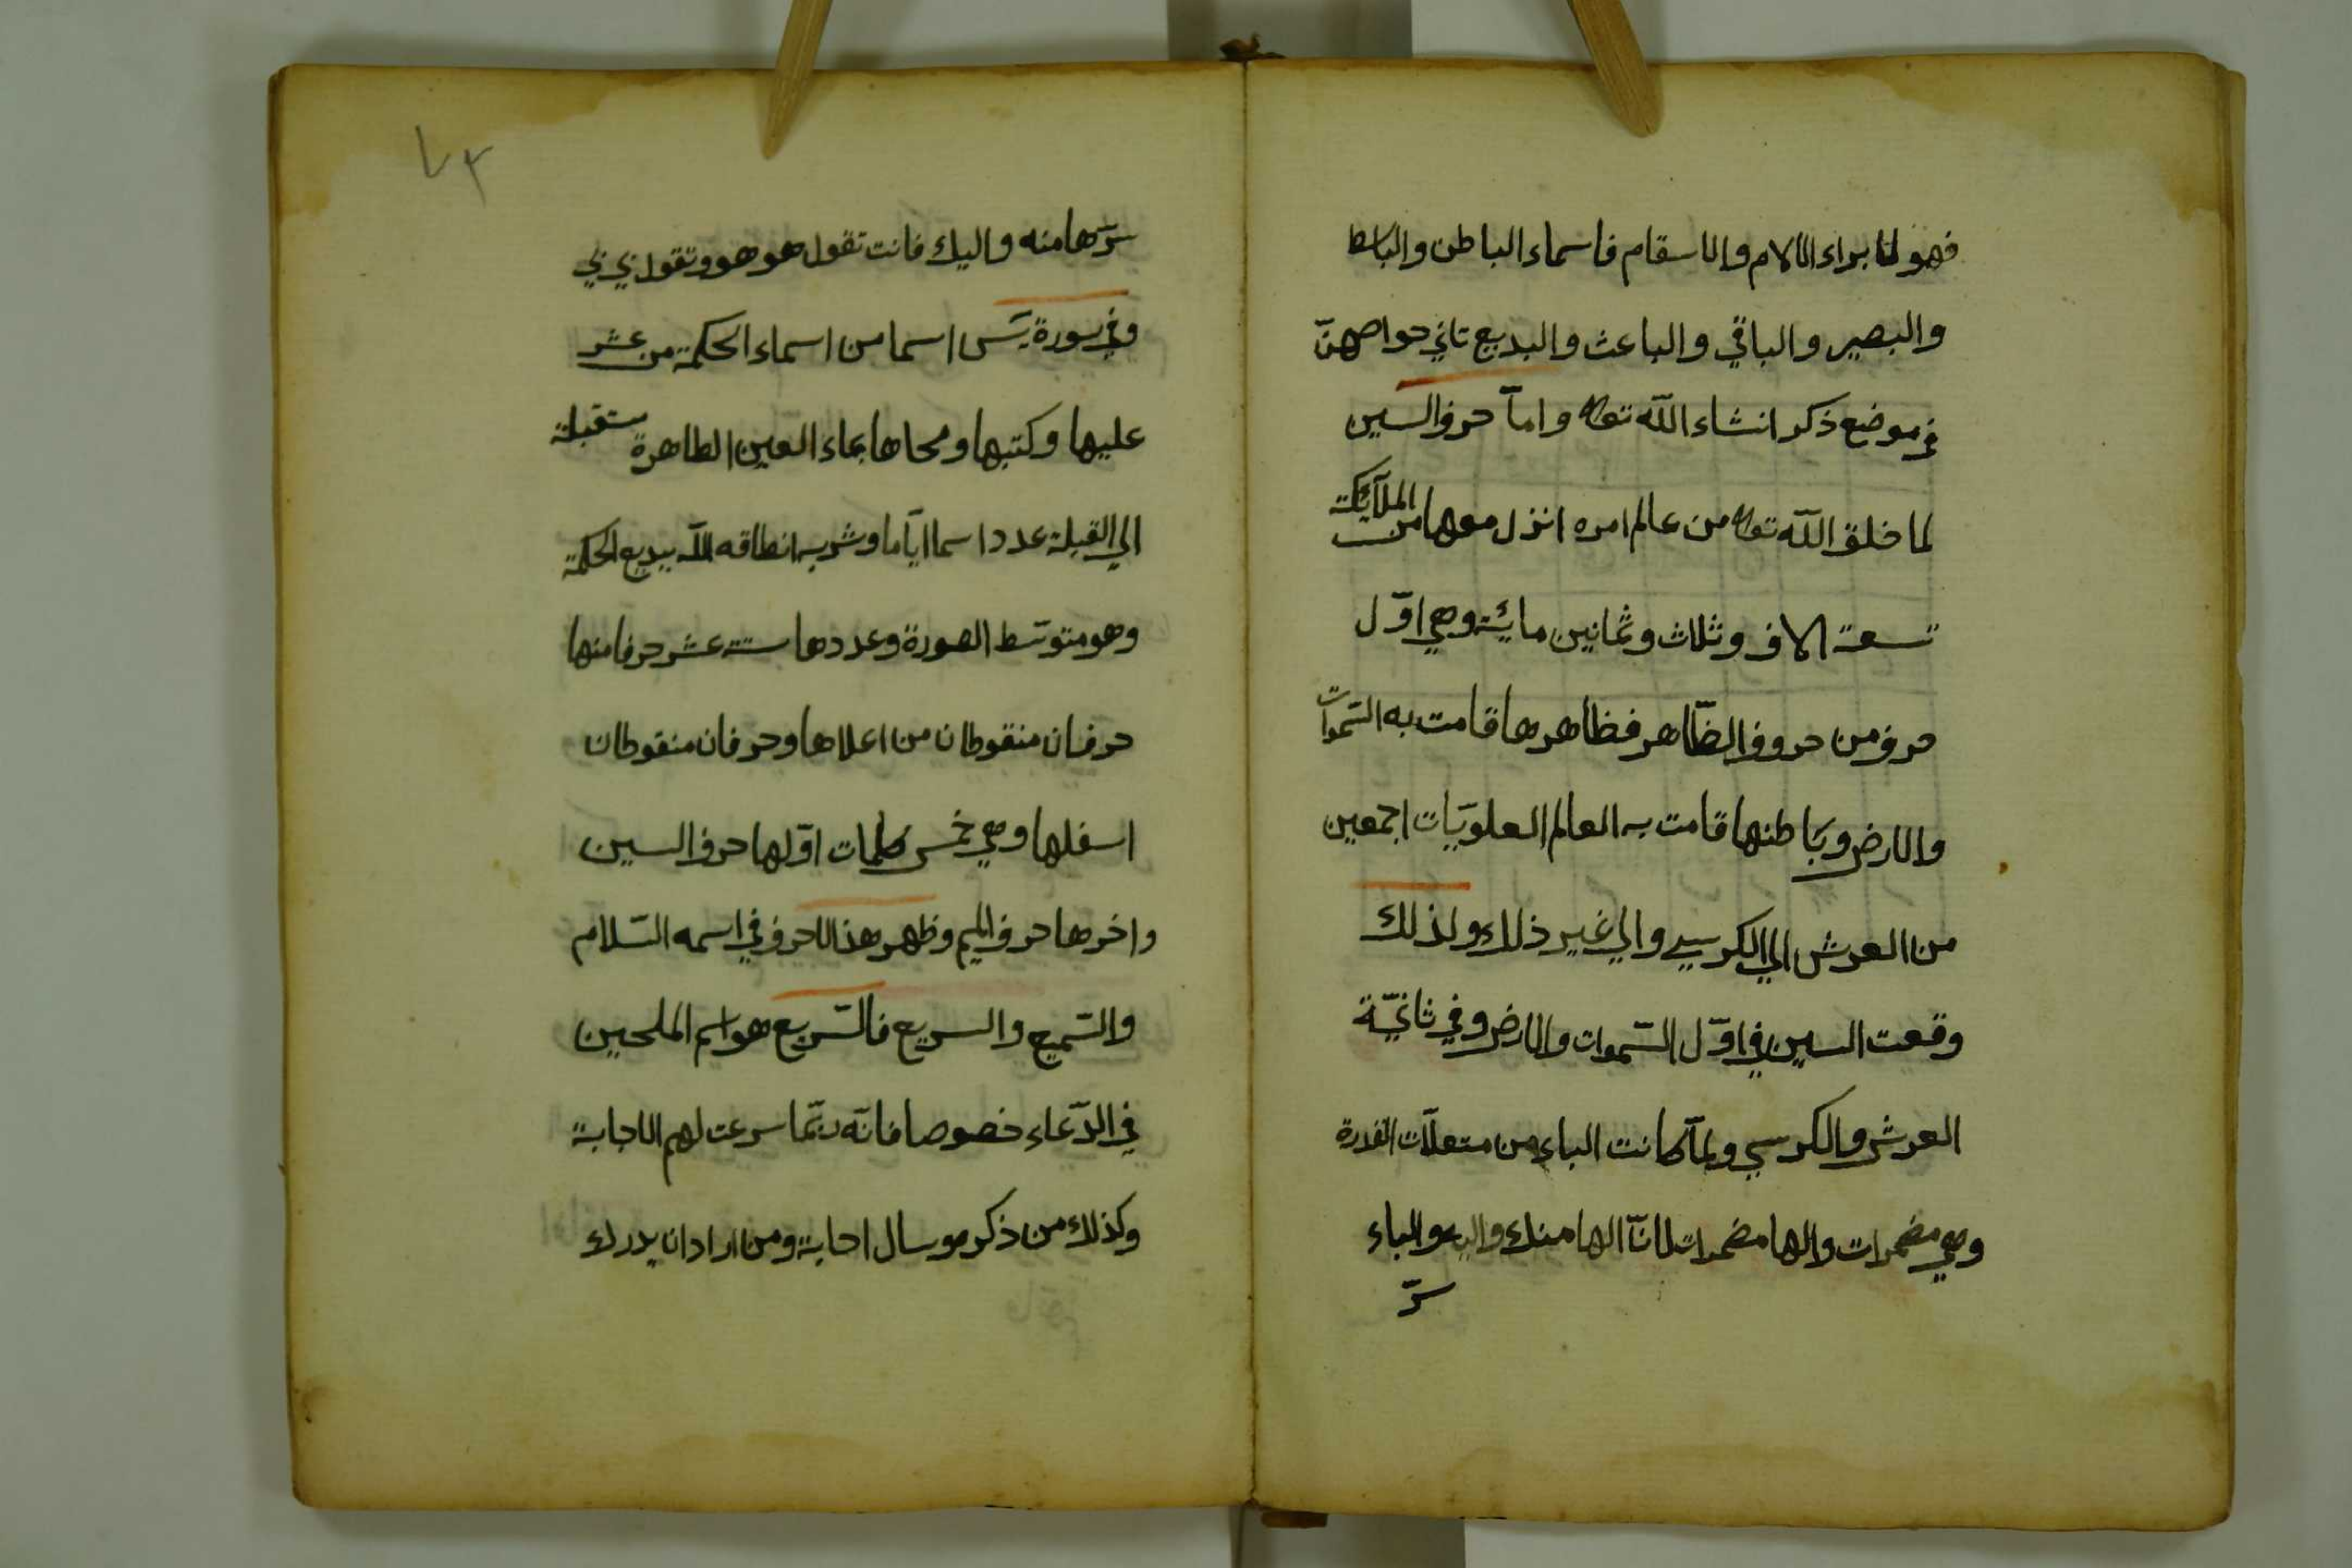 فهو لابراء الالام والاسقام فاسماء الباطن والباسط
والبصير والباقي والباعث والبديع تاتي خواصهنّ
في موضع ذكر انشاء اللّه تعالى وامّا حرف السين
لما خلق اللّه تعالى من عالم امره انزل معها من الملآئكة
تسعة الاف وثلاث وثمانين مائة وهي اوّل
حرف من حروف الظّاهر فظاهرها قامت به السّموات
والارض وباطنها قامت به العالم العلويّات اجمعين
من العرش الي الكرسي والي غير ذلك ولذلك
وقعت السين في اوّل السّموات والارض وفي ثانيّة
العرش والكرسي ولمّا كانت الباء من متعلّات القدرة
وهي مضمرات والها مضمرات لانّ الها منك واليه والباء
سرّ
٧٣
سرّها منه واليك فانت تقول هو هو وتقول بي بي
وفي سورة يسٓ اسما من اسماء الحكمة من عثر
عليها وكتبها ومحاها بماء العين الطاهرة مستقبلة
الي القبلة عدد اسما ايّاما وشربه انطاقه اللّه ببديع الحكمة
وهو متوسّط الصورة وعددها ستة عشر حرفا منها
حرفان منقوطان من اعلاها وحرفان منقوطان
اسفلها وهي خمس كلمات اوّلها حرف السين
واخرها حرف الميم وظهر هذا الاحرف في اسمه السّلام
والسّميع والسريع فالسّريع هو اسم الملحين
في الدّعاء خصوصا فانّه ربّما سرعت لهم الاجابة
وكذلك من ذكره وسال اجابة ومن اراد ان يدرك